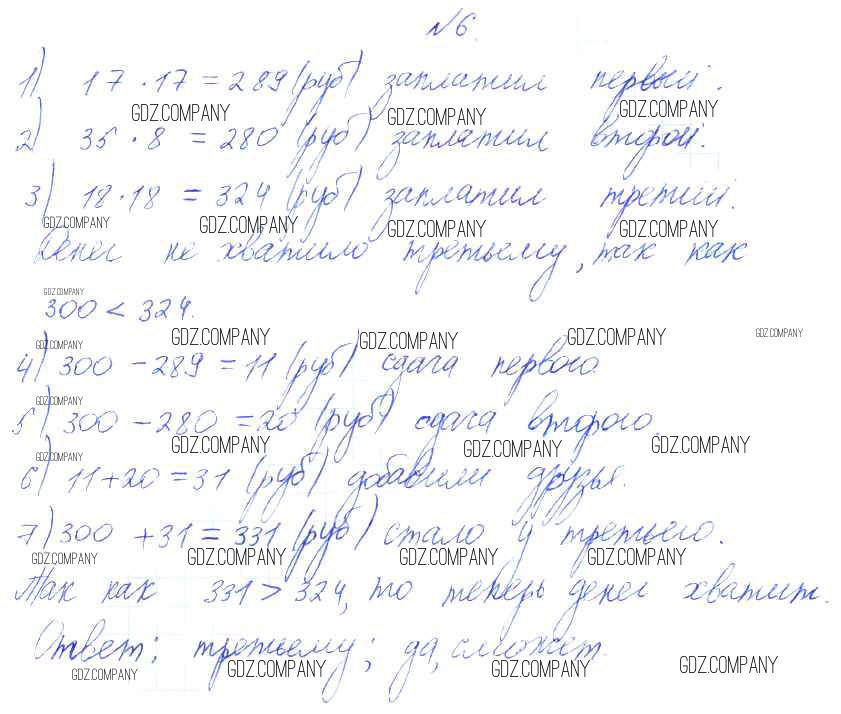 №6.
1) 17 · 17 = 289 (руб) заплатил первый.
GDZ.COMPANY GDZ.COMPANY GDZ.COMPANY
2) 35 · 8 = 280 (руб) заплатил второй.
3) 18 · 18 = 324 (руб) заплатил третий.
GDZ.COMPANY GDZ.COMPANY GDZ.COMPANY GDZ.COMPANY
Денег не хватило третьему, так как
GDZ.COMPANY
300 < 324.
GDZ.COMPANY GDZ.COMPANY GDZ.COMPANY GDZ.COMPANY GDZ.COMPANY
4) 300 - 289 = 11 (руб) сдача первого.
GDZ.COMPANY
5) 300 - 280 = 20 (руб) сдача второго
GDZ.COMPANY GDZ.COMPANY GDZ.COMPANY GDZ.COMPANY
6) 11 + 20 = 31 (руб) добавили друзья.
7) 300 + 31 = 331 (руб) стало у третьего.
GDZ.COMPANY GDZ.COMPANY GDZ.COMPANY GDZ.COMPANY
Так как 331 > 324, то теперь денег хватит.
Ответ: третьему; да, сможет.
GDZ.COMPANY GDZ.COMPANY GDZ.COMPANY GDZ.COMPANY